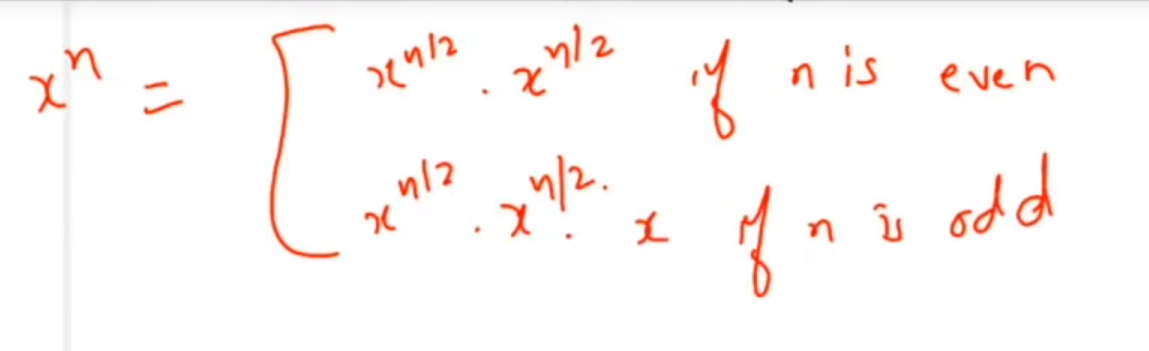 xⁿ = [ x^n/2 . x^n/2 if n is even
x^n/2 . x^n/2 . x if n is odd